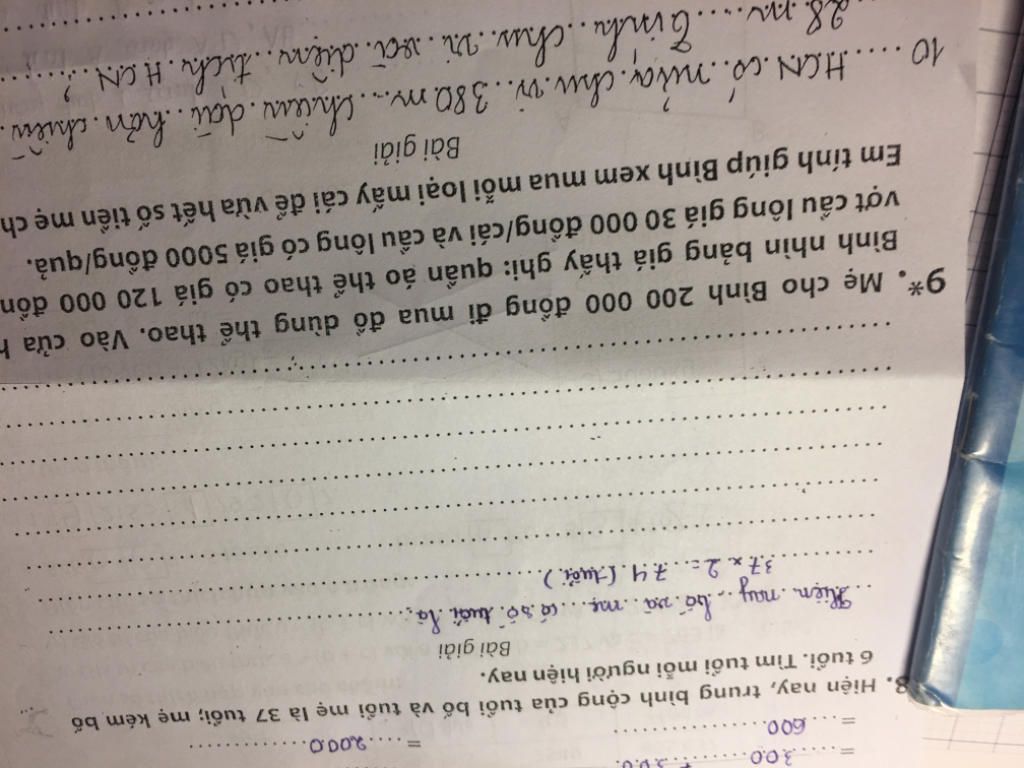 = ....300....+ 300..
= ....600..........
= .....2000..............
8. Hiện nay, trung bình cộng của tuổi bố và tuổi mẹ là 37 tuổi; mẹ kém bố
6 tuổi. Tìm tuổi mỗi người hiện nay.
Bài giải
Hiện nay, bố và mẹ có số tuổi là:
37 x 2 = 74 (tuổi)
9*. Mẹ cho Bình 200 000 đồng đi mua đồ dùng thể thao. Vào cửa h
Bình nhìn bảng giá thấy ghi: quần áo thể thao có giá 120 000 đồn
vợt cầu lông giá 30 000 đồng/cái và cầu lông có giá 5000 đồng/quả.
Em tính giúp Bình xem mua mỗi loại mấy cái để vừa hết số tiền mẹ ch
Bài giải
10 HCN có nửa chu vi 380 m chiều dài hơn chiều
28 m Tính chu vi và diện tích HCN ?